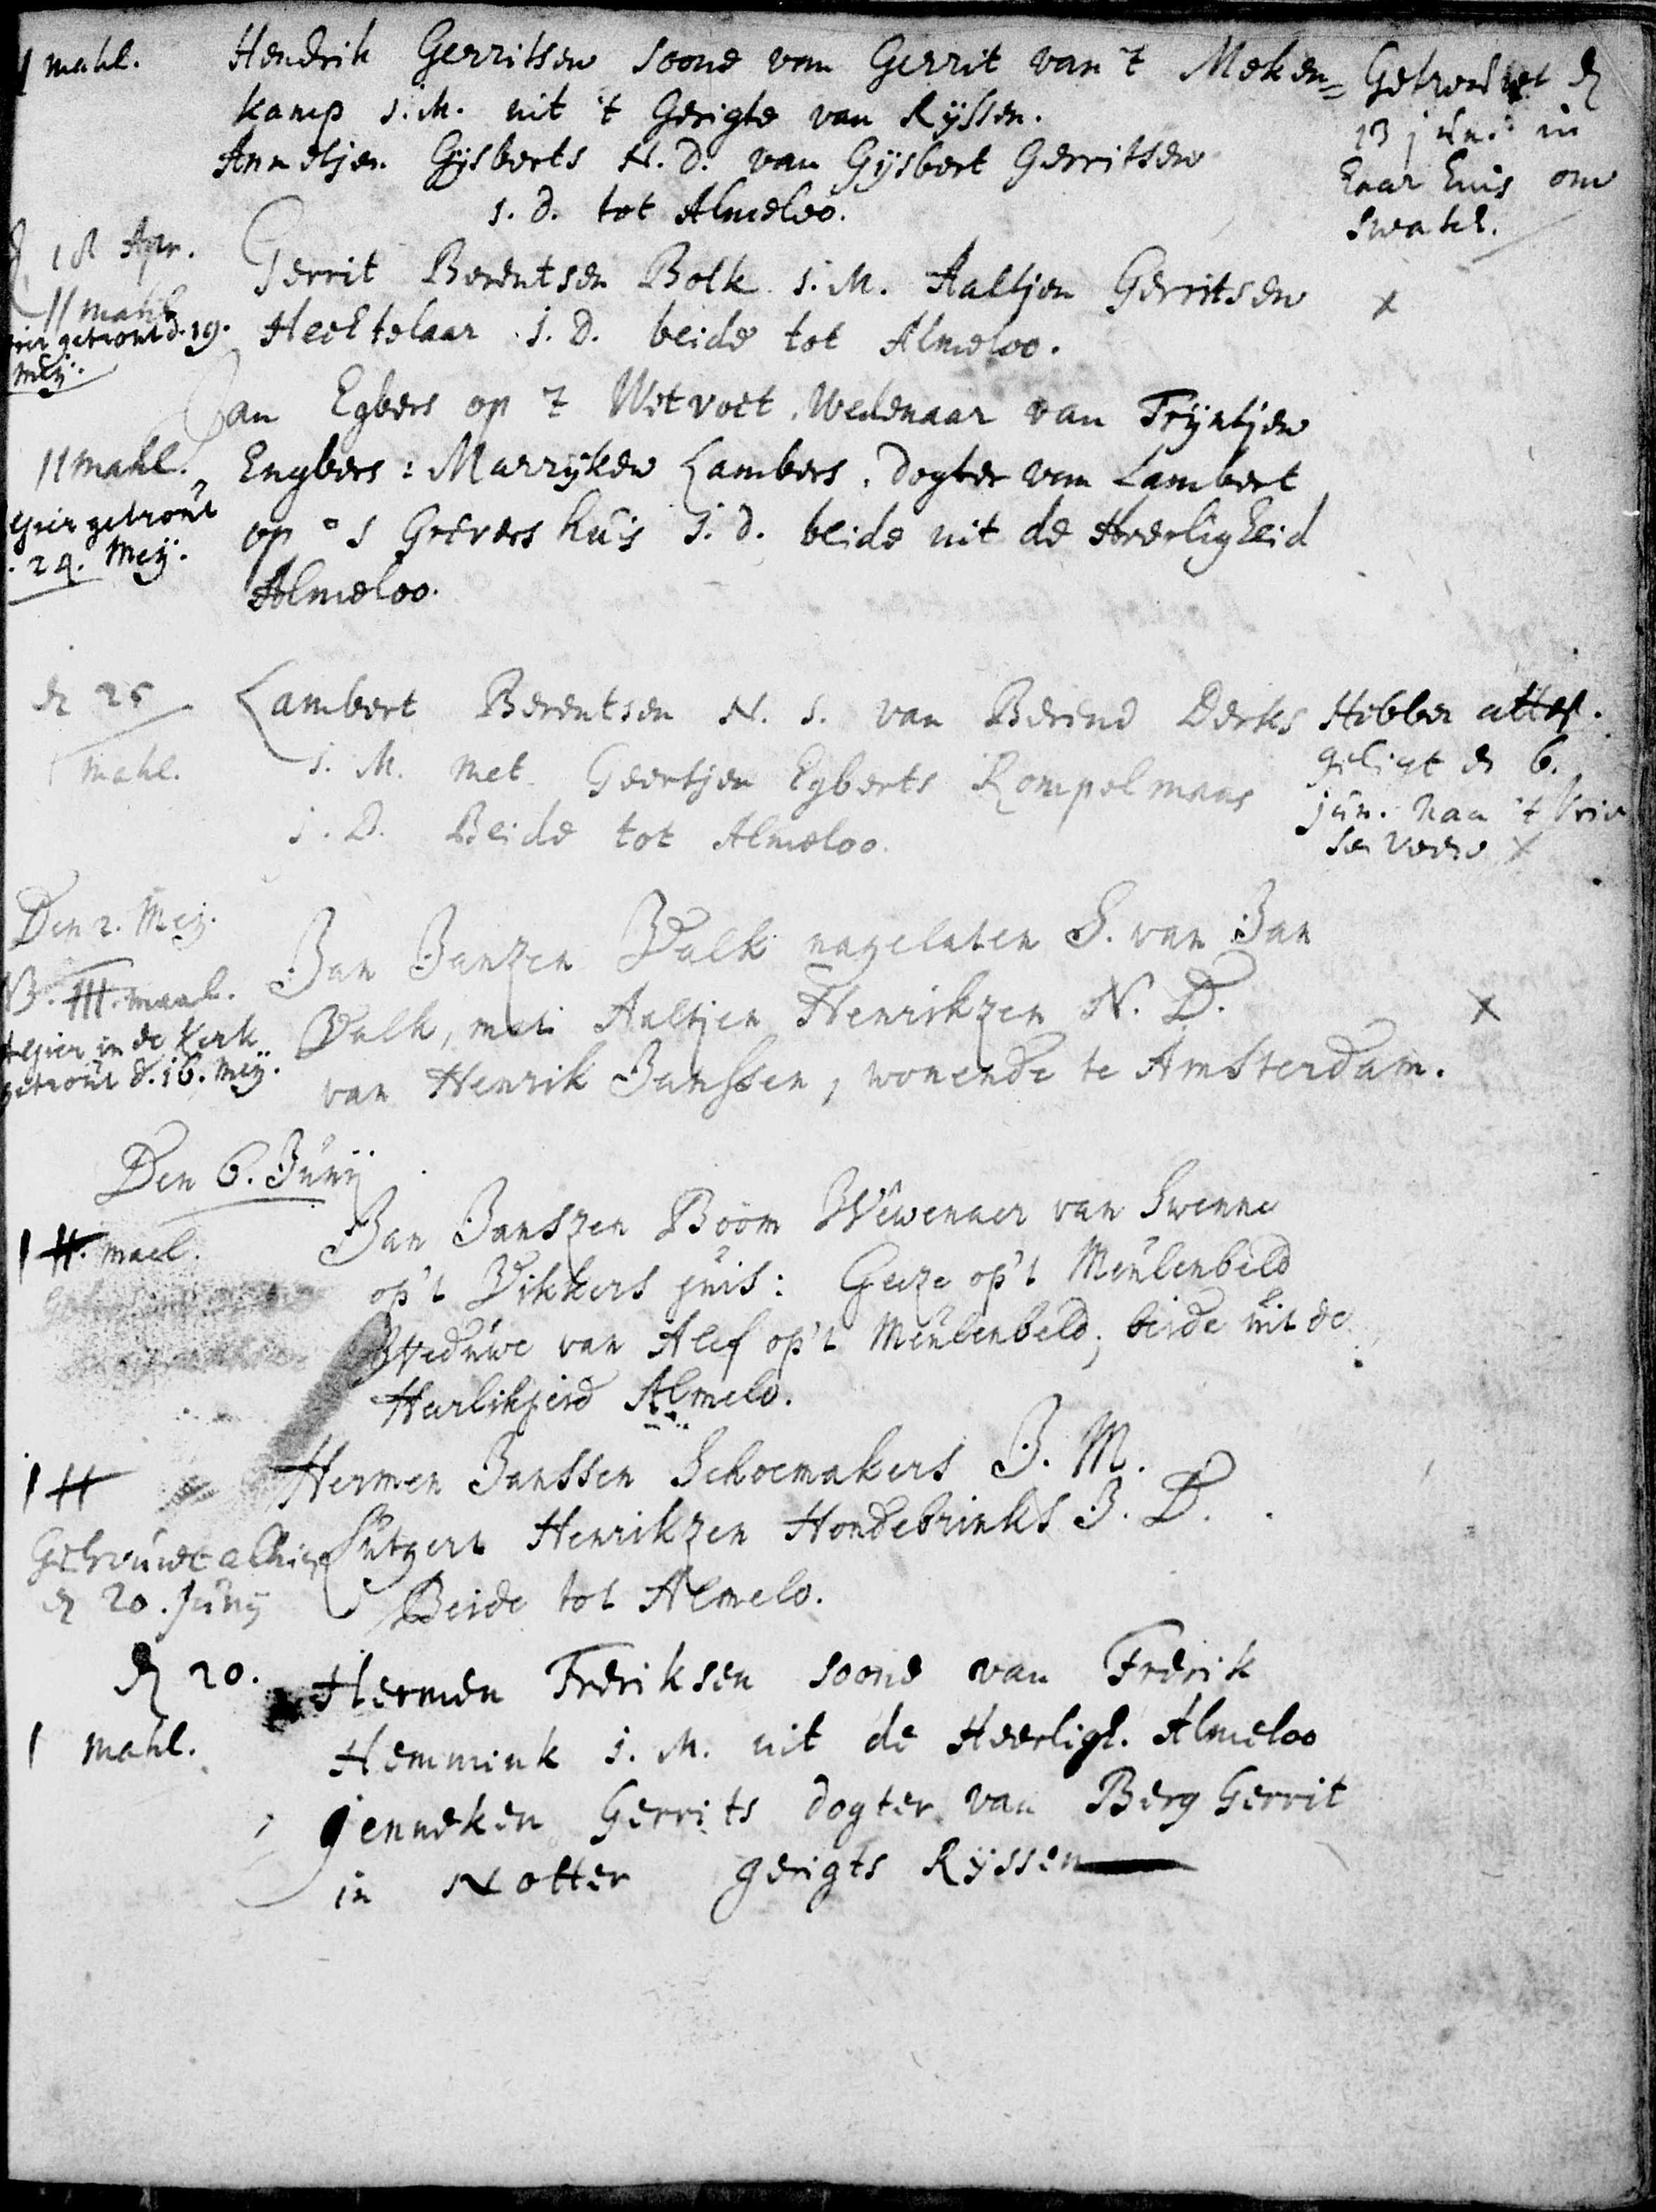 1 mahl.
Hendrik Gerritsen soone van Gerrit van 't Meken=
kamp j.M. uit 't Gerigte van Ryssen.
Annetjen Gysberts N. d. van Gysbert Gerritsen
j. d. tot Almeloo.
Getrouwt dn
13 juni in
haar huis om
swakh.
dn 18 Apr.
11 mahl
hier getrout d. 19.
Meij.
Gerrit Berentsen Bolk j. M. Aaltjen Gerritsen
Hechtelaar j. D. beide tot Almeloo.
x
11 mahl.
hier getrout
. 24. Meij.
Jan Egbers op 't Wetvoet, Wedenaar van Tryntjen
Engbers : Marryken Lambers, dogter van Lambert
op 's Grevers huis j. d. beide uit de Heerligheid
Almeloo.
dn 25
1 mahl.
Lambert Berentsen N. s. van Berend Derks
j. M. met Geertjen Egberts Rompelmans
j. D. Beide tot Almeloo.
Hebben attes.
geligt dn 6.
jun. naa 't Vrie
sen veen x
Den 2. Meij.
B. III. maal.
Alhier in de Kerk
getrout d. 16. Meij.
Jan Janzen Valk nagelaten S. van Jan
Valk, met Aaltjen Henrikzen N. D.
van Henrik Janssen, wonende te Amsterdam.
x
Den 6. Junij
1 H. mael.
Jan Janszen Boom Wewenaer van Swenne
op't Vikkers huis: Geeze op't Meulenbeld
Weduwe van Alef op't Meulenbeld; beide uit de
Heerlikheid Almelo.
1 H
Getrouwt alhier
dn 20. Junij
Hermen Janssen Schoemakers J. M.
Lutgert Henrikzen Hondebrinks J. D.
Beide tot Almelo.
dn 20.
1 mahl.
Hermen Freriksen soone van Frerik
Hemmink j. M. uit de Heerligh. Almeloo
jenneken Gerrits dogter van Berg Gerrit
in Notter gerigts Ryssen